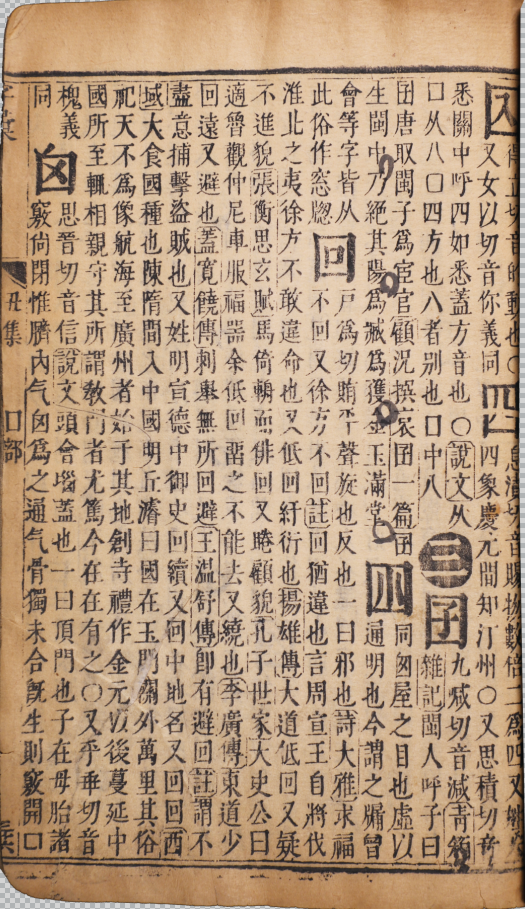 又女以切音你義同 四 息漬切音賜
四象慶元間知汀州〇又思積切音
悉關中呼四如悉蓋方音也〇說文从
口从八口四方也八者别也口中八
九咸切音減青箱
雜記閩人呼子曰
囝唐取閩子爲宦官顧況撰哀囝一篇囝
同囱屋之目也虛以
生閩中乃絕其陽爲臧爲獲金玉滿堂
通明也今謂之牖曾
會等字皆从
戸爲切賄平聲旋也反也一曰邪也詩大雅求福
此俗作窓牕 回
不回又徐方不回註回猶違也言周宣王自將伐
淮北之夷徐方不敢違命也又低回紆衍也揚雄傳大道低回又疑
不進貌張衡思玄賦馬倚輈而俳回又睠顧貌孔子世家大史公曰
適魯觀仲尼車服禮器余低回留之不能去又繞也李廣傳東道少
回遠又避也蓋寬饒傳刺舉無所回避王温舒傳卽有避回註謂不
盡意捕擊盜賊也又姓明宣德中御史回續又回中地名又回回西
域大食國種也陳隋間入中國明丘濬曰國在玉門關外萬里其俗
祀天不爲像航海至廣州者始于其地創寺禮作金元以後蔓延中
國所至輒相親守其所謂敎門者尤篤今在在有之〇又乎乖切音
槐義
同 囟
思晉切音信說文頭會𡿺蓋也一曰頂門也子在母胎諸
竅尚閉惟臍內气囟爲之通气骨獨未合旣生則竅開口
丑集 口部